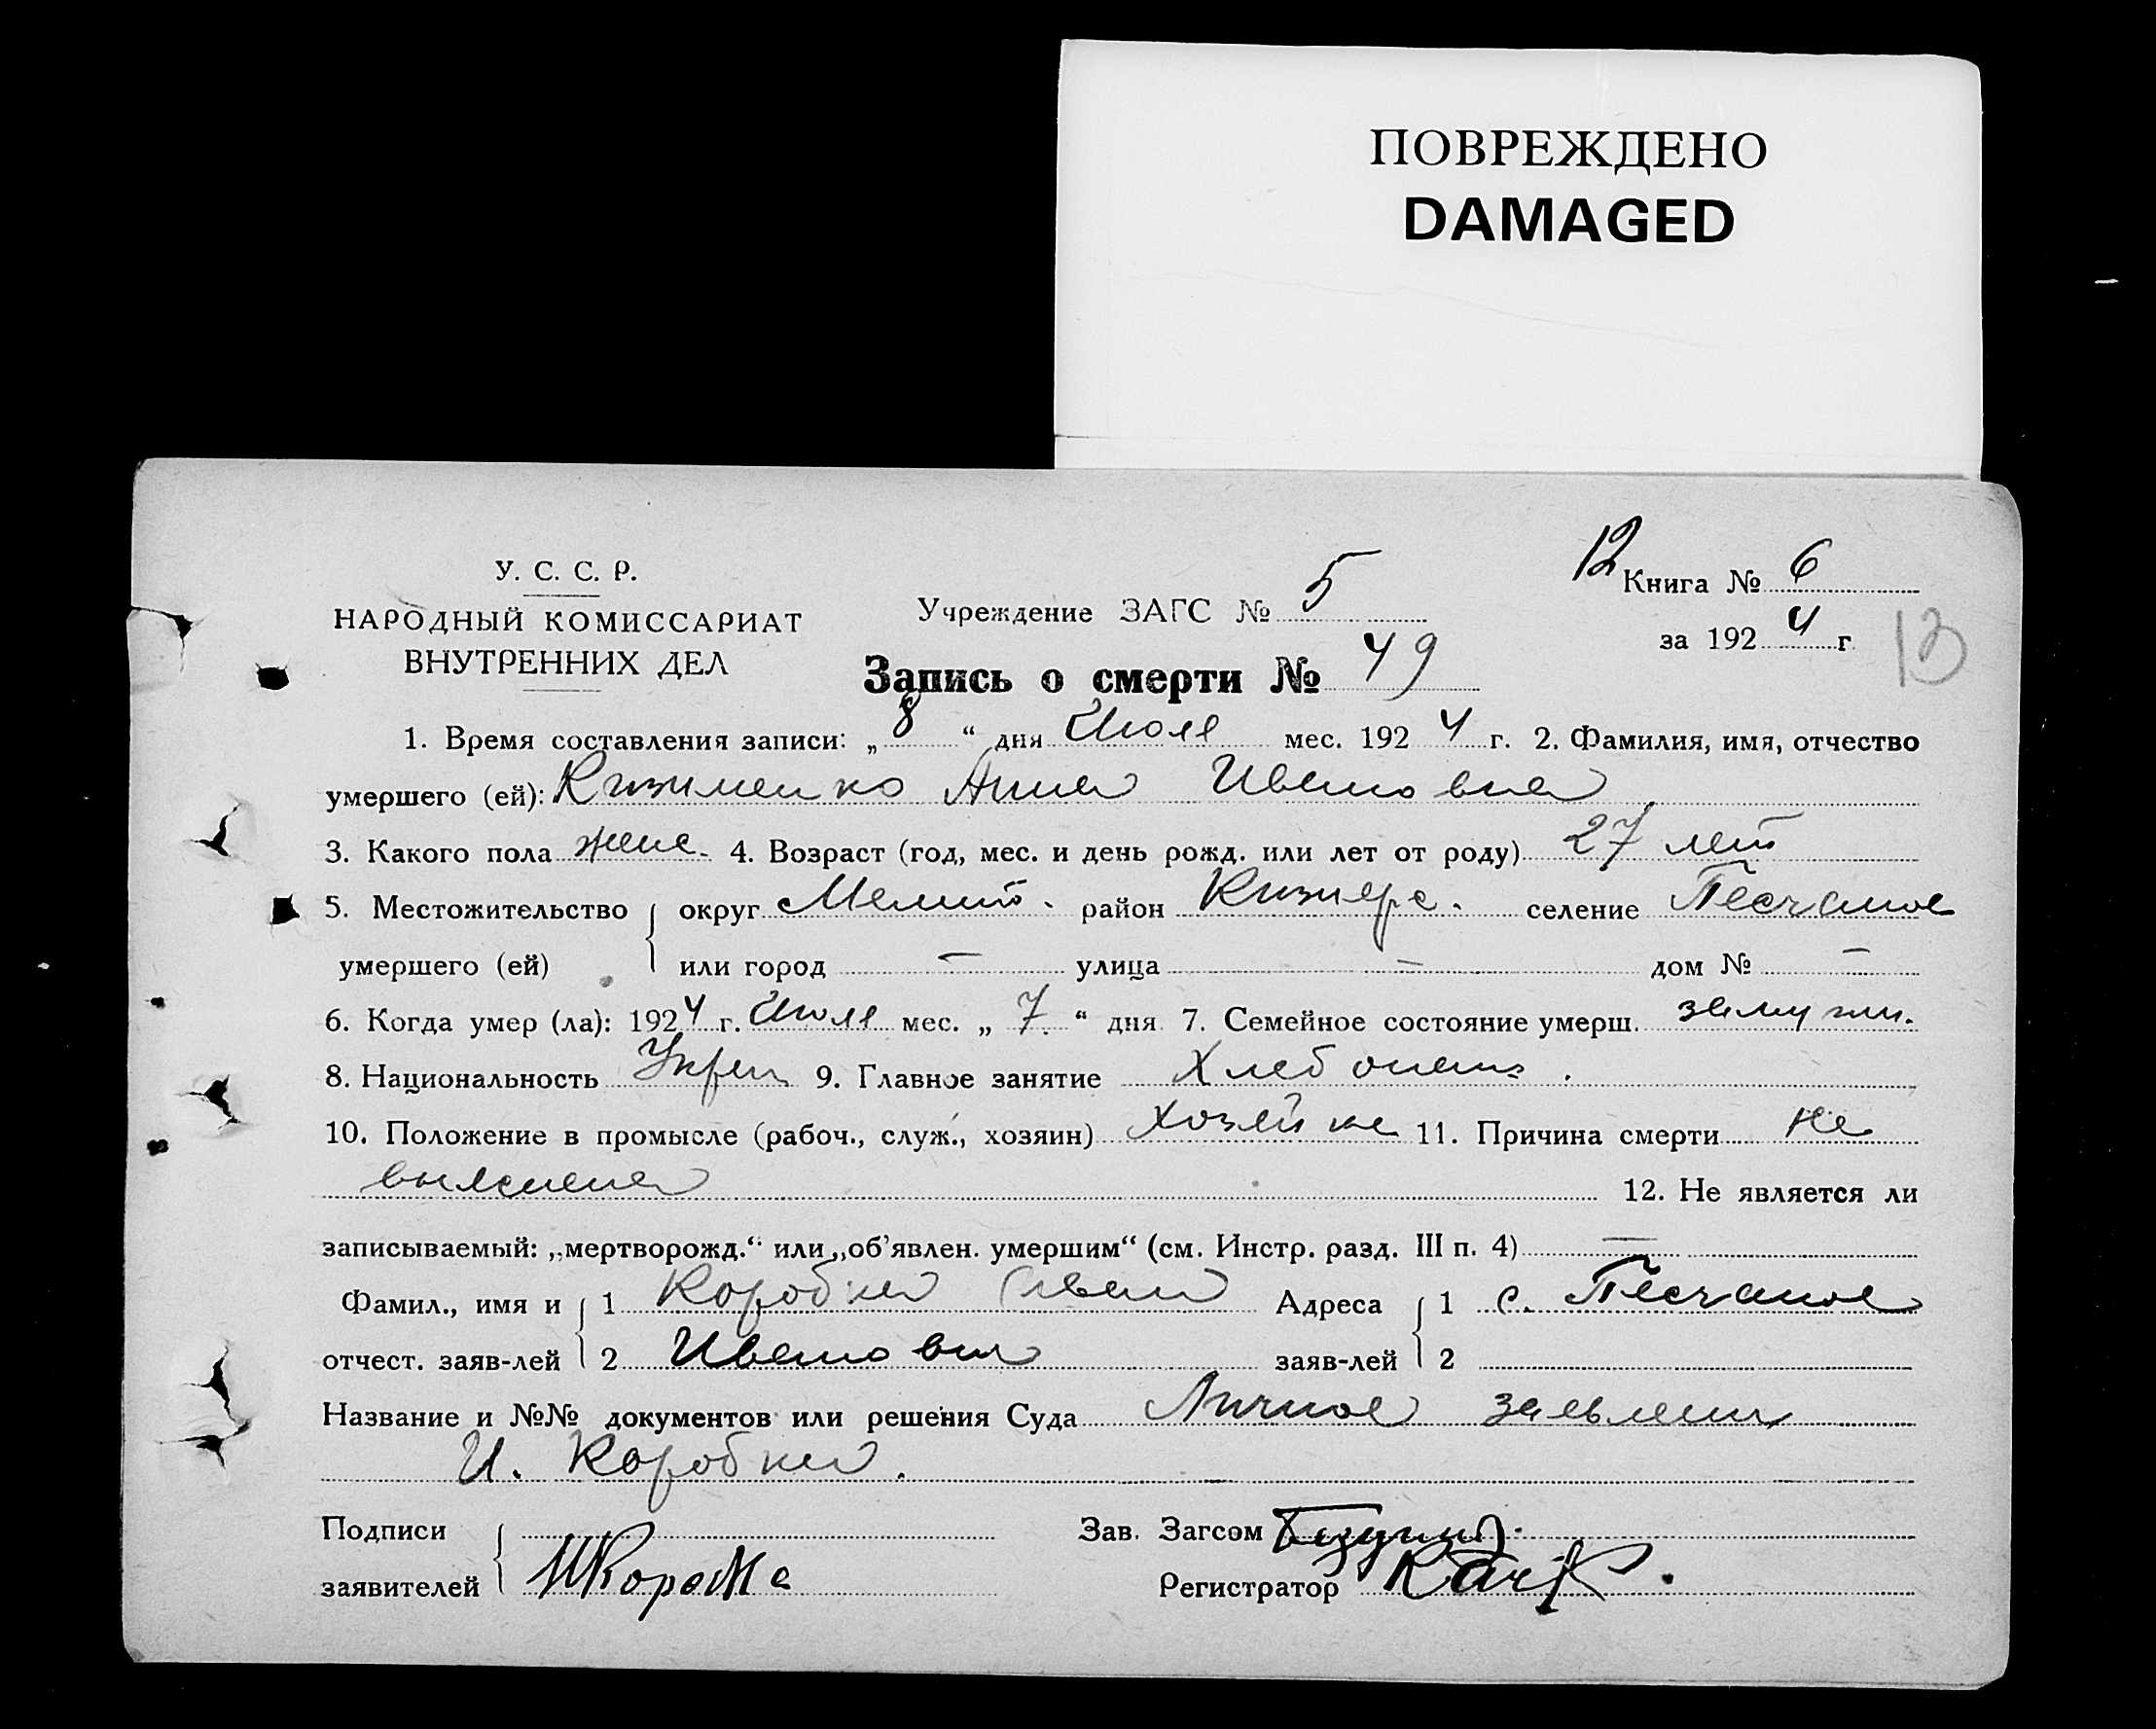 ПОВРЕЖДЕНО
DAMAGED
У. С. С. Р.
НАРОДНЫЙ КОМИССАРИАТ
ВНУТРЕННИХ ДЕЛ
Учреждение ЗАГС № 5
12 Книга № 6
за 1924 г.
13
Запись о смерти № 49
1. Время составления записи: „8“ дня Июля мес. 1924 г. 2. Фамилия, имя, отчество
умершего (ей): Кизименко Анна Ивановна
3. Какого пола женс. 4. Возраст (год, мес. и день рожд. или лет от роду) 27 лет
5. Местожительство округ Мелит. район Кизиярс. селение Песчаное
умершего (ей) или город — улица — дом № —
6. Когда умер (ла): 1924 г. Июля мес. „7“ дня 7. Семейное состояние умерш. замужн.
8. Национальность Украи 9. Главное занятие Хлебопаш.
10. Положение в промысле (рабоч., служ., хозяин) хозяйка 11. Причина смерти не
выяснена 12. Не является ли
записываемый: „мертворожд.“ или „об’явлен. умершим“ (см. Инстр. разд. III п. 4) —
Фамил., имя и 1 Коробка Иван Адреса 1 с. Песчаное
отчест. заяв-лей 2 Иванович заяв-лей 2
Название и №№ документов или решения Суда Личное заявлени
И. Коробка.
Подписи Зав. Загсом
заявителей Регистратор